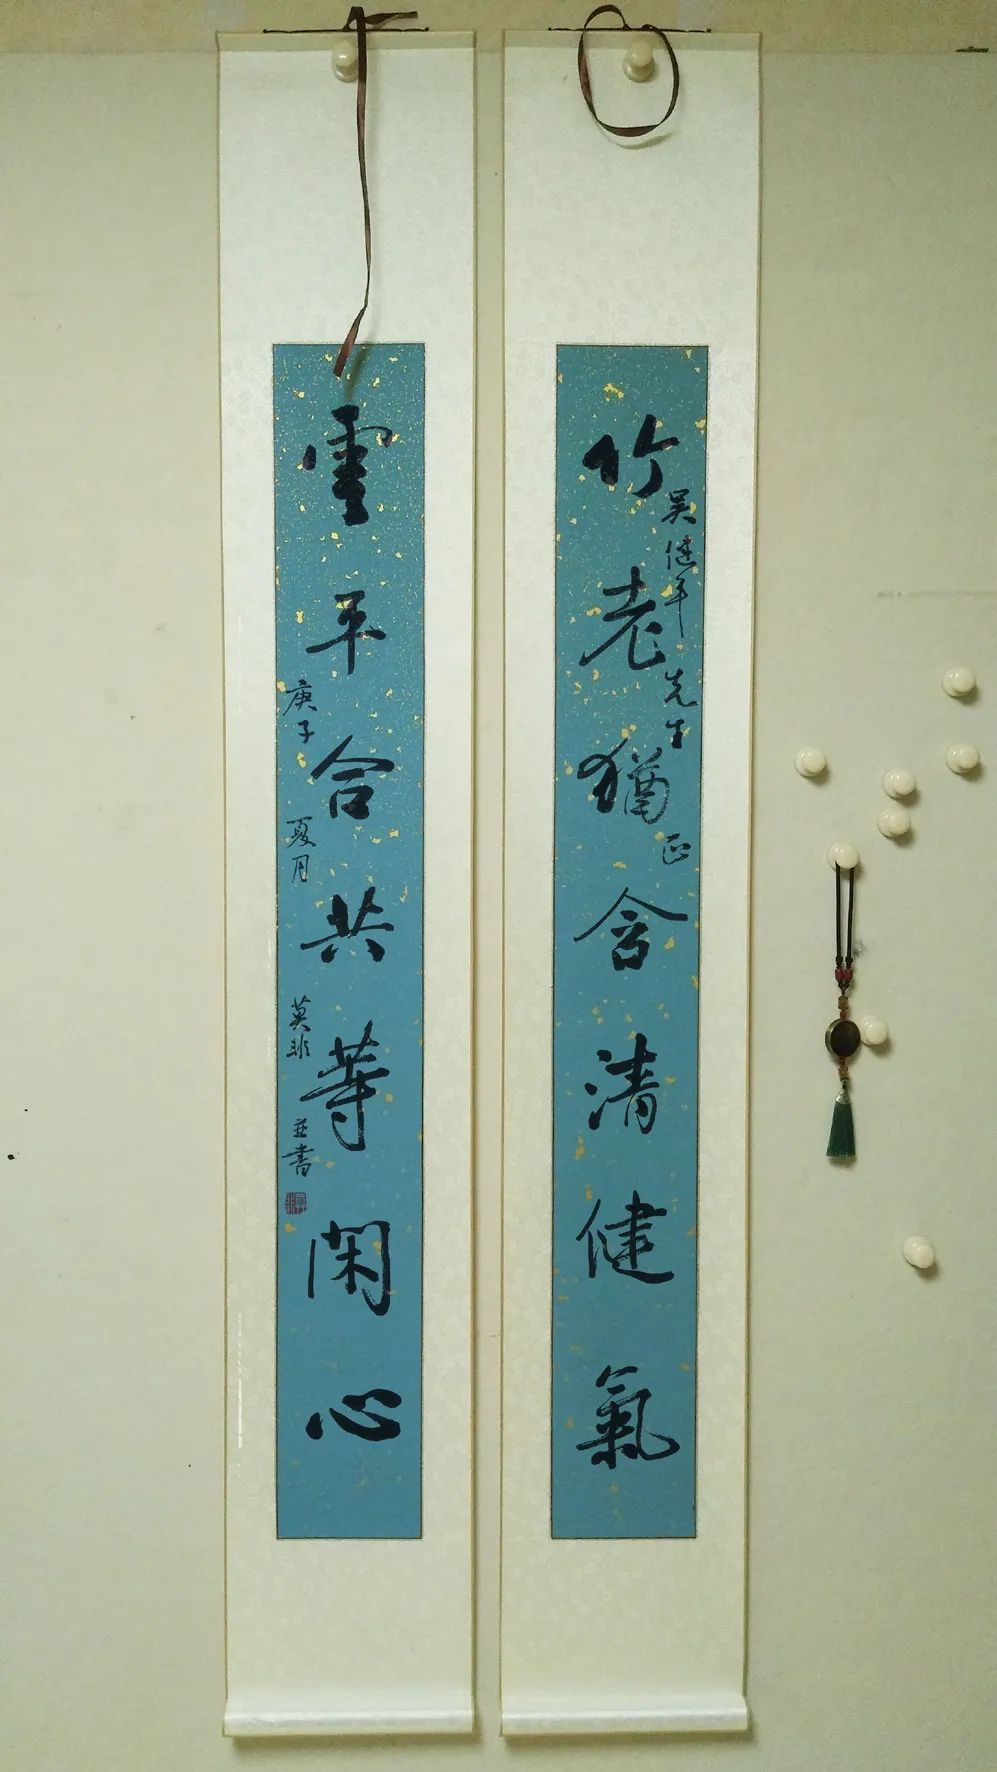 竹老猶含清健氣
吴健平先生正
雲平合共等閑心
庚子夏月莫非並書